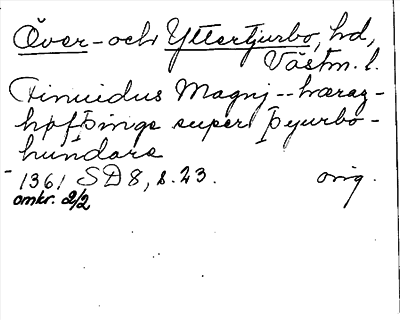 Över- och Yttertjurbo, hd,
Västm. l.
Finuidus Magnj -- hæraz-
høfþinge super þyurbo-
hundare
1361 SD 8, s. 23. orig.
omkr. 2/2